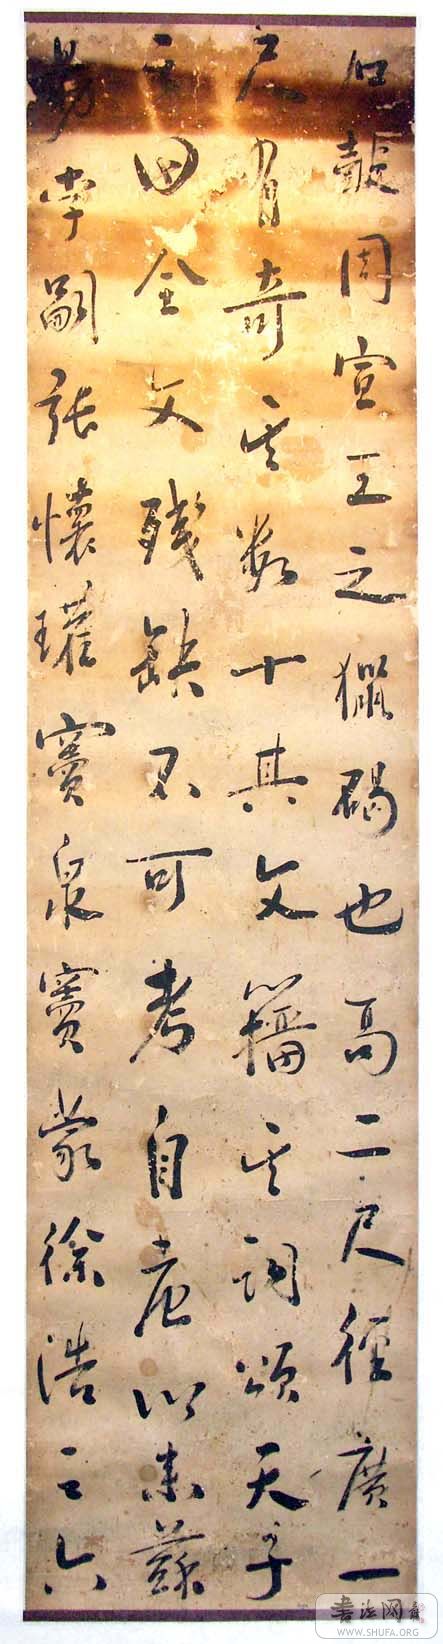 石鼓周宣王之獵碣也高二尺徑廣一
尺有奇其數十其文籀其詞頌天子
之田全文殘缺不可考自唐以來蘇
勗李嗣張懷瓘竇臮竇蒙徐浩
書法网
WWW.SHUFA.ORG